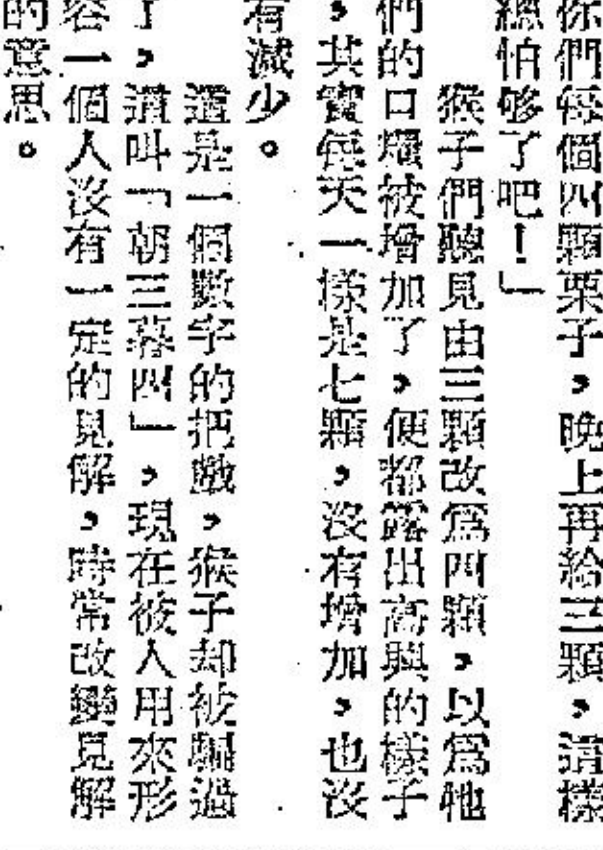 你們每個四顆栗子，晚上再給三顆，這樣
總怕够了吧！」
猴子們聽見由三顆改爲四顆，以爲牠
們的口糧被增加了，便都露出高興的樣子
，其實每天一樣是七顆，沒有增加，也沒
有減少。
這是一個數字的把戲，猴子却被騙過
了，這叫「朝三暮四」，現在被人用來形
容一個人沒有一定的見解，時常改變見解
的意思。